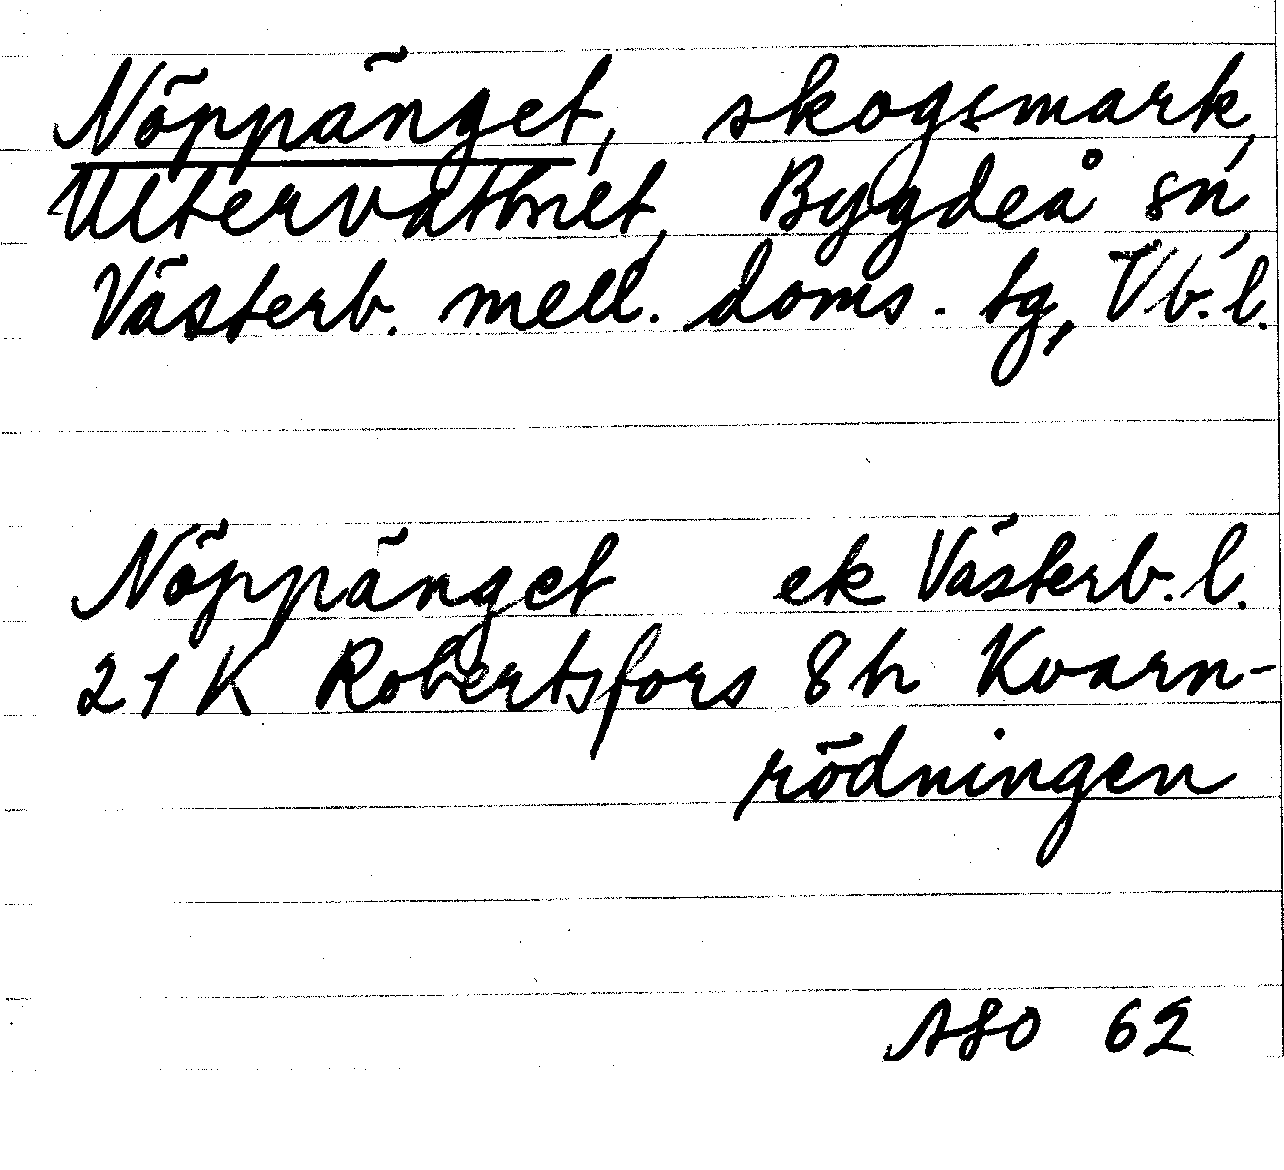 Nöppänget, skogsmark,
Ultervattnet, Bygdeå sn,
Västerb. mell. doms. tg, Vb. l.
Nöppänget ek Västerb. l.
21 K Robertsfors 8 h Kvarn-
rödningen
ASO 62